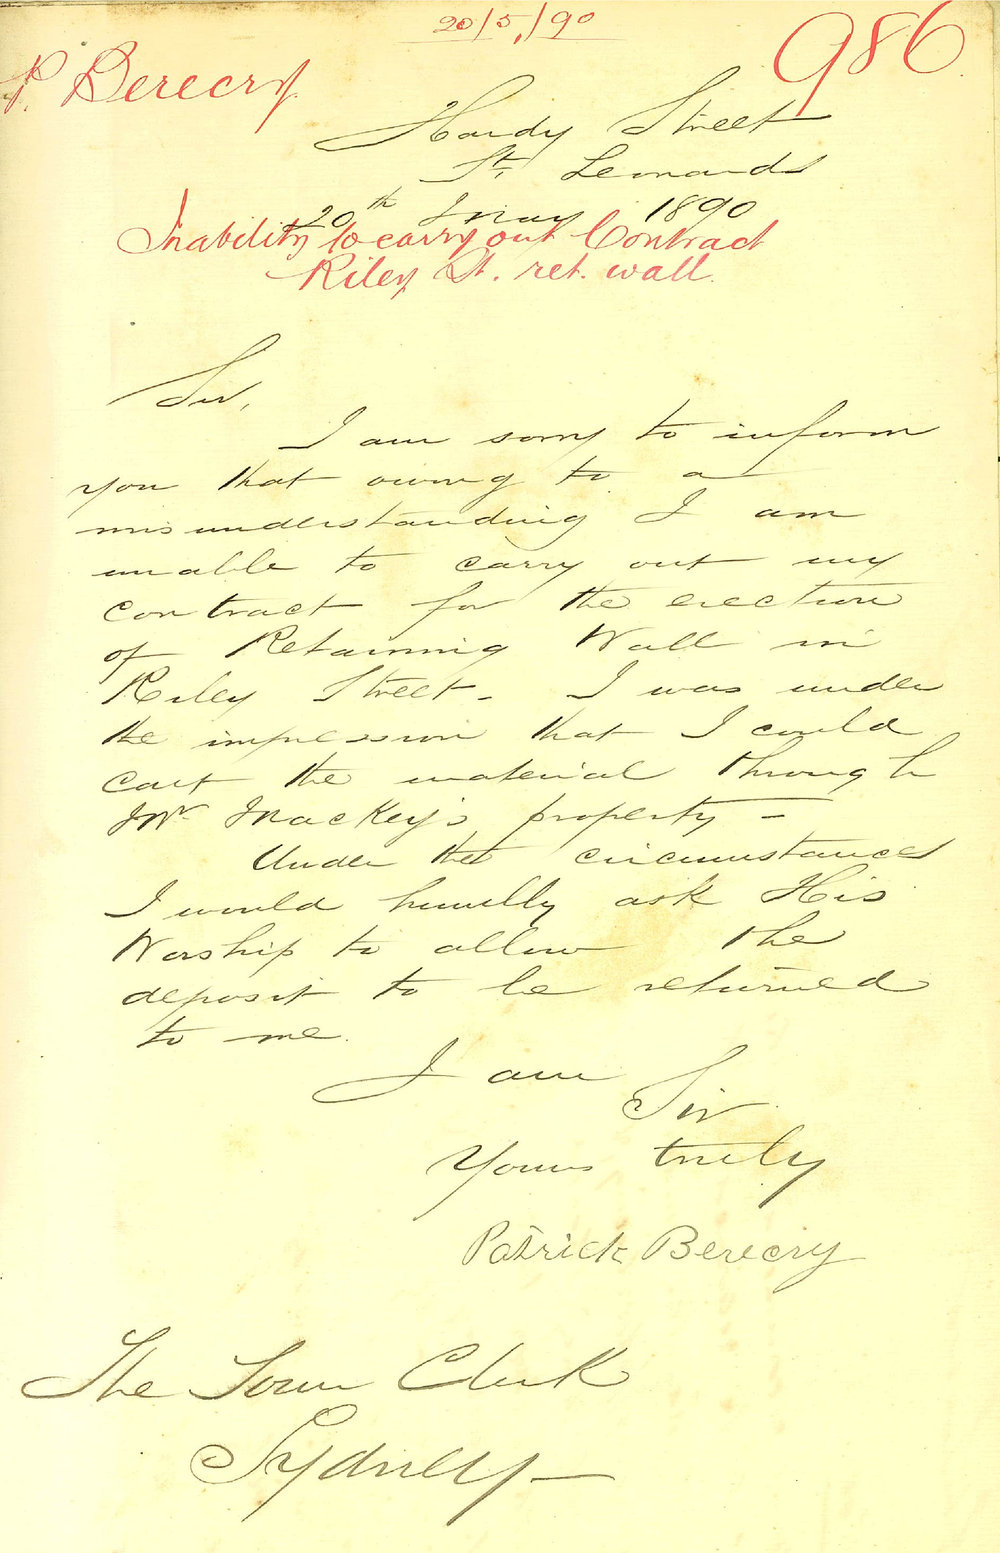 20/5/90
986
P. Berecry
Hardy Street
St. Leonards
20th May 1890
Inability to carry out Contract
Riley St. ret. wall.
Sir,
I am sorry to inform
you that owing to a
misunderstanding I am
unable to carry out my
contract for the erection
of Retaining Wall in
Riley Street - I was under
the impression that I could
cart the material through
Mr Mackey's property -
Under the circumstances
I would humbly ask His
Worship to allow the
deposit to be returned
to me.
I am Sir
Yours truly
Patrick Berecry
The Town Clerk
Sydney -